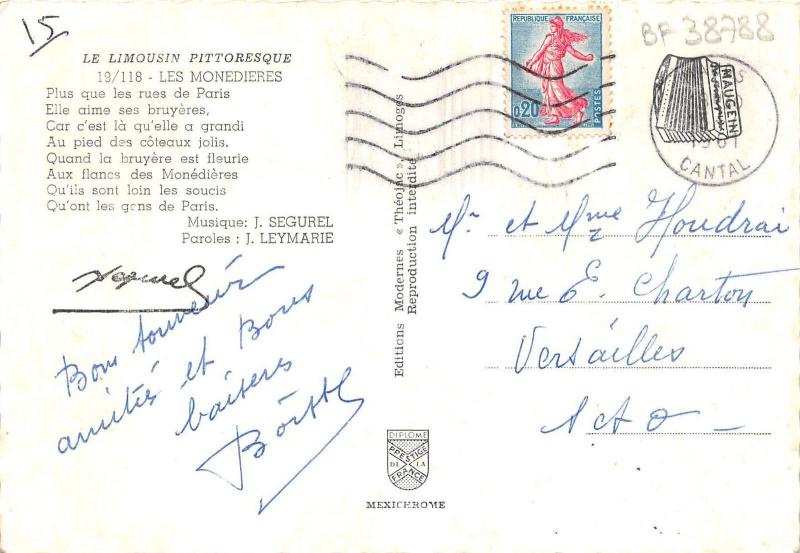 15
BF 38788
LE LIMOUSIN PITTORESQUE
19/118 - LES MONEDIERES
Plus que les rues de Paris
Elle aime ses bruyères,
Car c'est là qu'elle a grandi
Au pied des côteaux jolis.
Quand la bruyère est fleurie
Aux flancs des Monédières
Qu'ils sont loin les soucis
Qu'ont les gens de Paris.
Musique: J. SEGUREL
Paroles : J. LEYMARIE
Segurel
Bon souvenir
amitiés et Bons
baisers
REPUBLIQUE FRANÇAISE
0,20
POSTES
MAUGEIN
CANTAL
Editions Modernes « Théojac », Limoges
Reproduction interdite
Mr et Mme Houdrai
9 rue E. Charton
Versailles
S et O
DIPLOME
PRESTIGE
DE LA
FRANCE
MEXICHROME